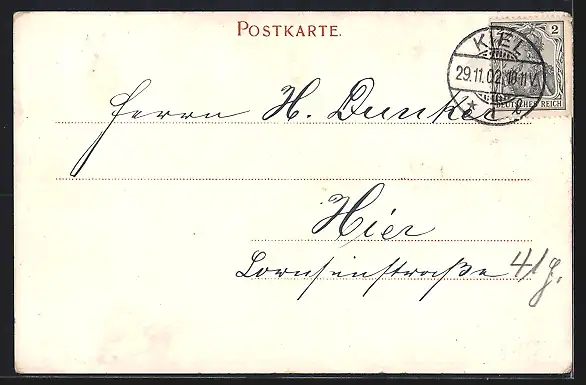 POSTKARTE.
2
KIEL
29.11.02.10-11V.
* 1
DEUTSCHES REICH
Herrn H. Dunker
Hier
Lornsenstraße 41